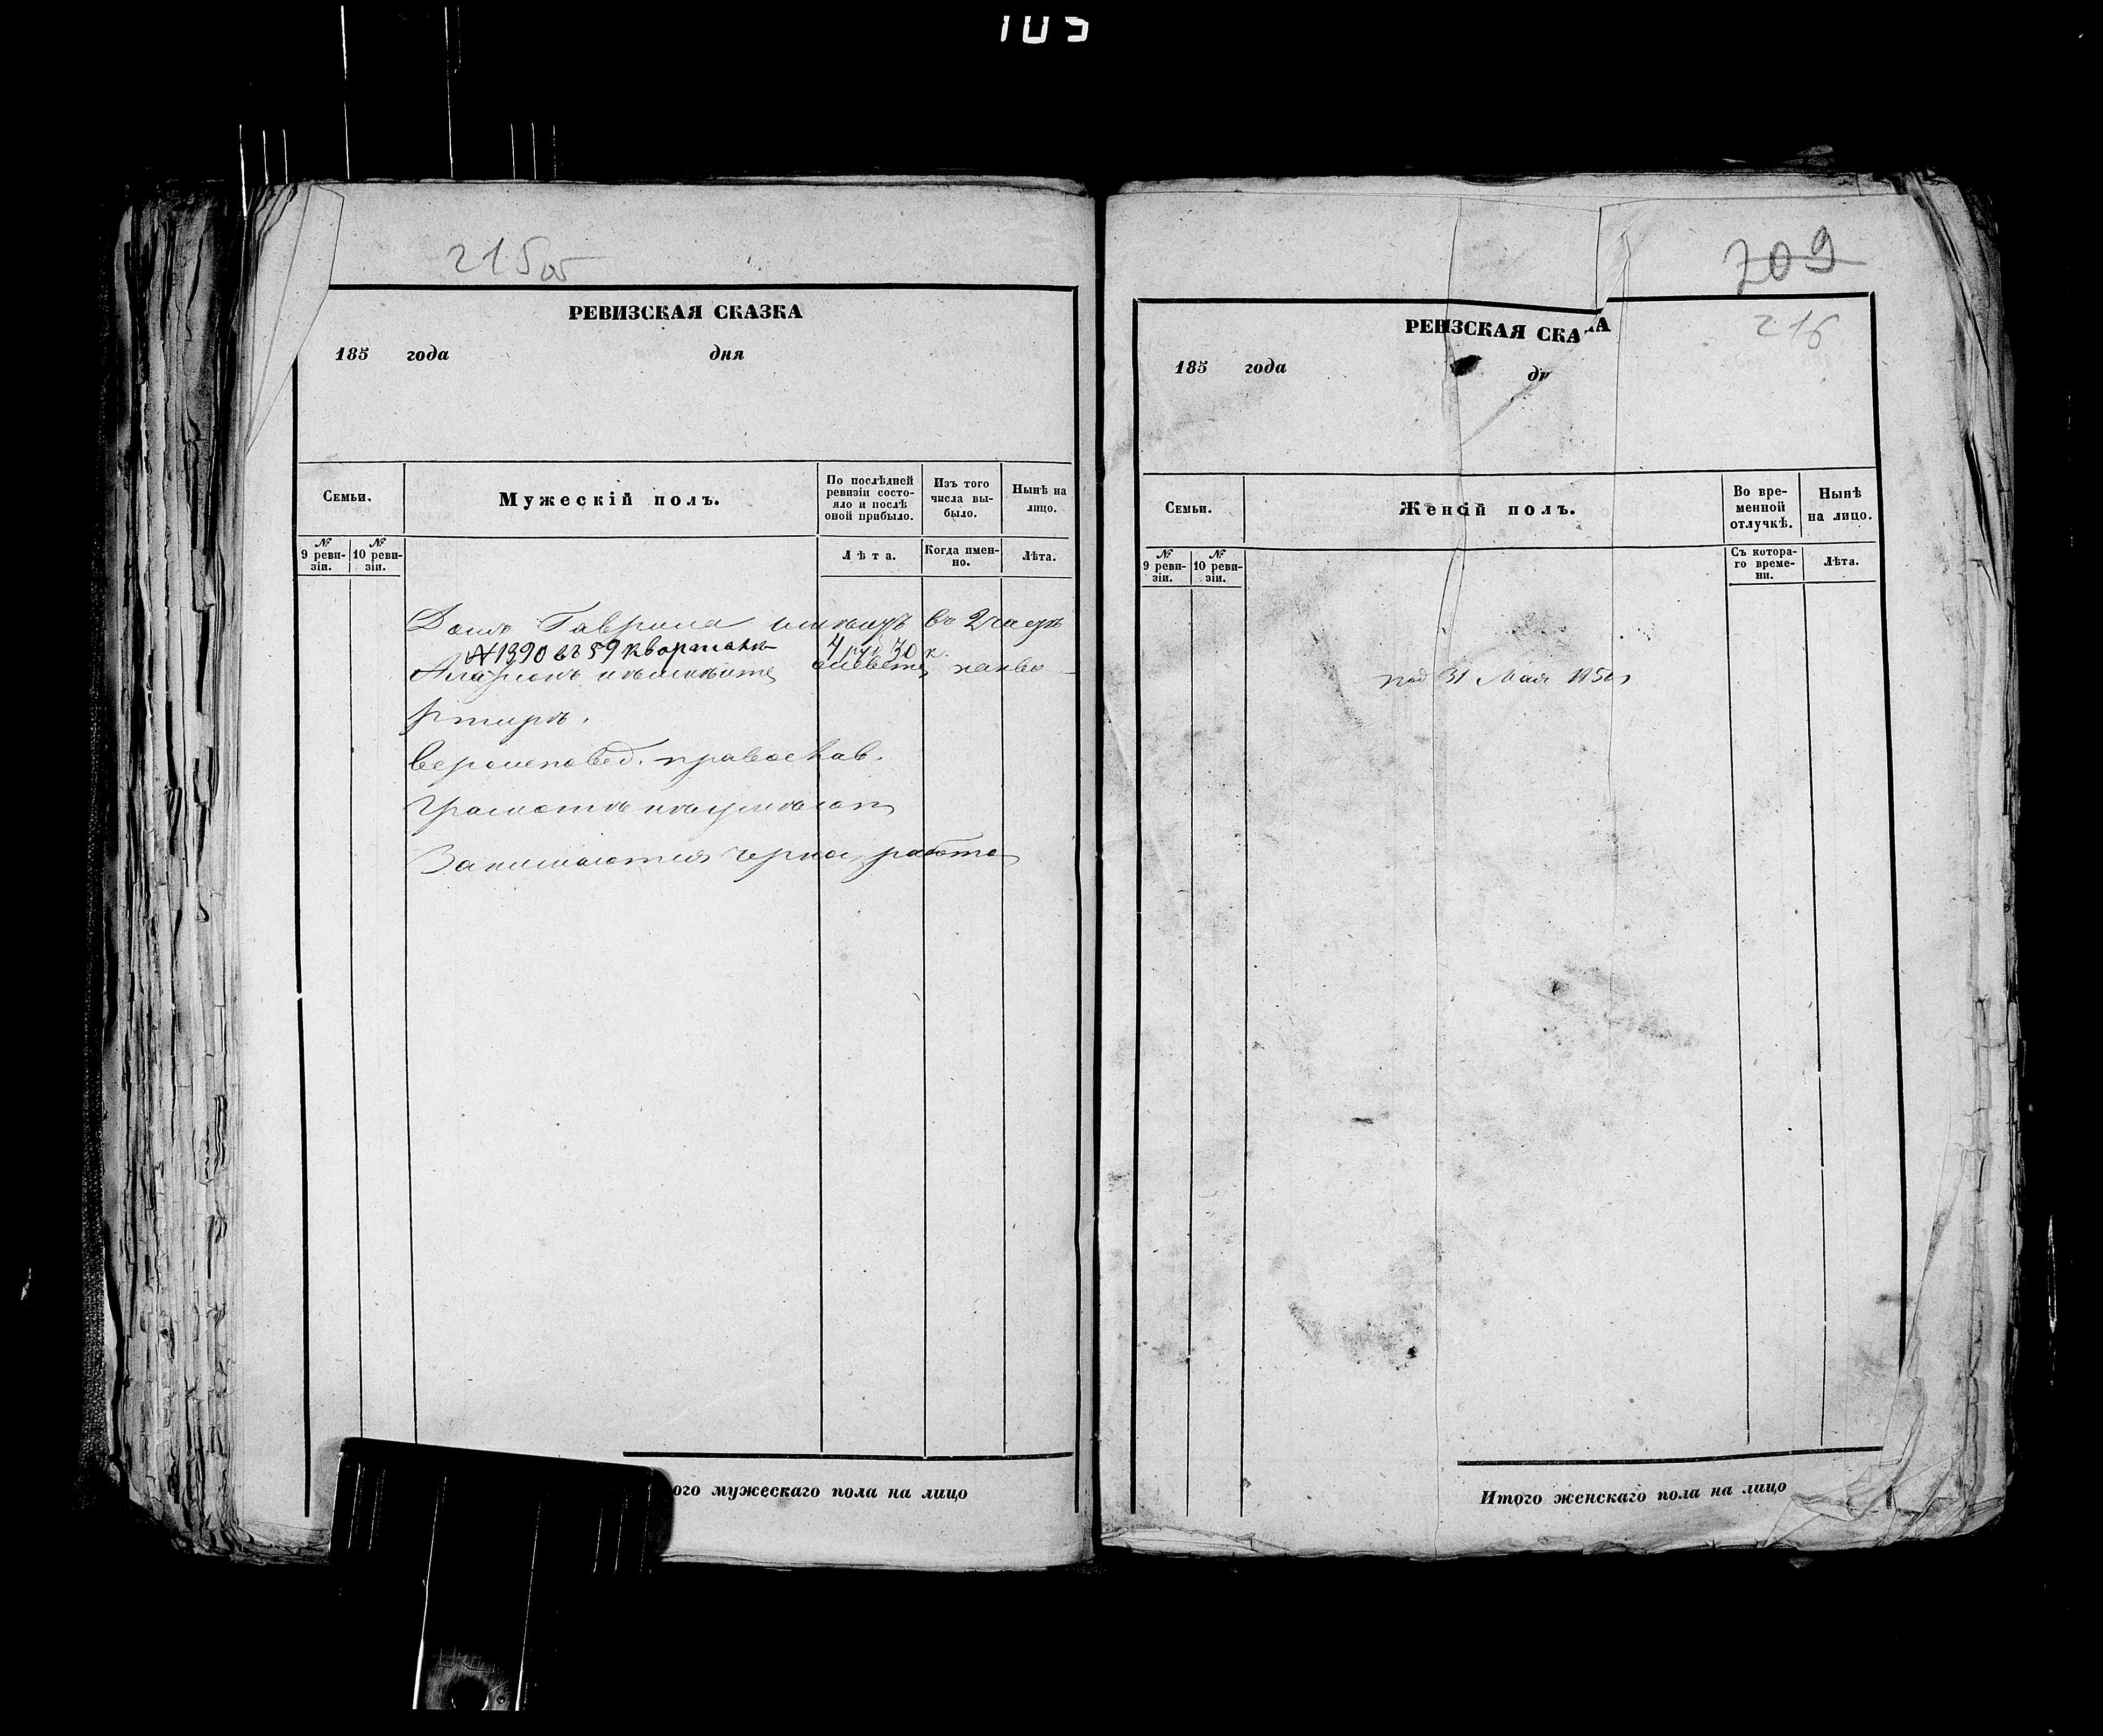 105
215об
РЕВИЗСКАЯ СКАЗКА
185 года дня
Семьи.
Мужескій полъ.
По послѣдней ревизіи состояло и послѣ оной прибыло.
Изъ того числа выбыло.
Нынѣ на лицо.
№ 9 ревизіи.
№ 10 ревизіи.
Лѣта.
Когда именно.
Лѣта.
Домъ Гаврила имѣетъ во 2 части
№ 1390 въ 59 кварталѣ 4 ру 30 к.
ртирѣ.
вероисповед. православ.
Грамотѣ неумѣют
Занимаются черной работой
ого мужескаго пола на лицо
709
216
РЕВИЗСКАЯ СКА КА
185 года дн
Семьи.
Женскій полъ.
Во временной отлучкѣ.
Нынѣ на лицо.
№ 9 ревизіи.
№ 10 ревизіи.
Съ котораго времени.
Лѣта.
31 Мая 1858
Итого женскаго пола на лицо